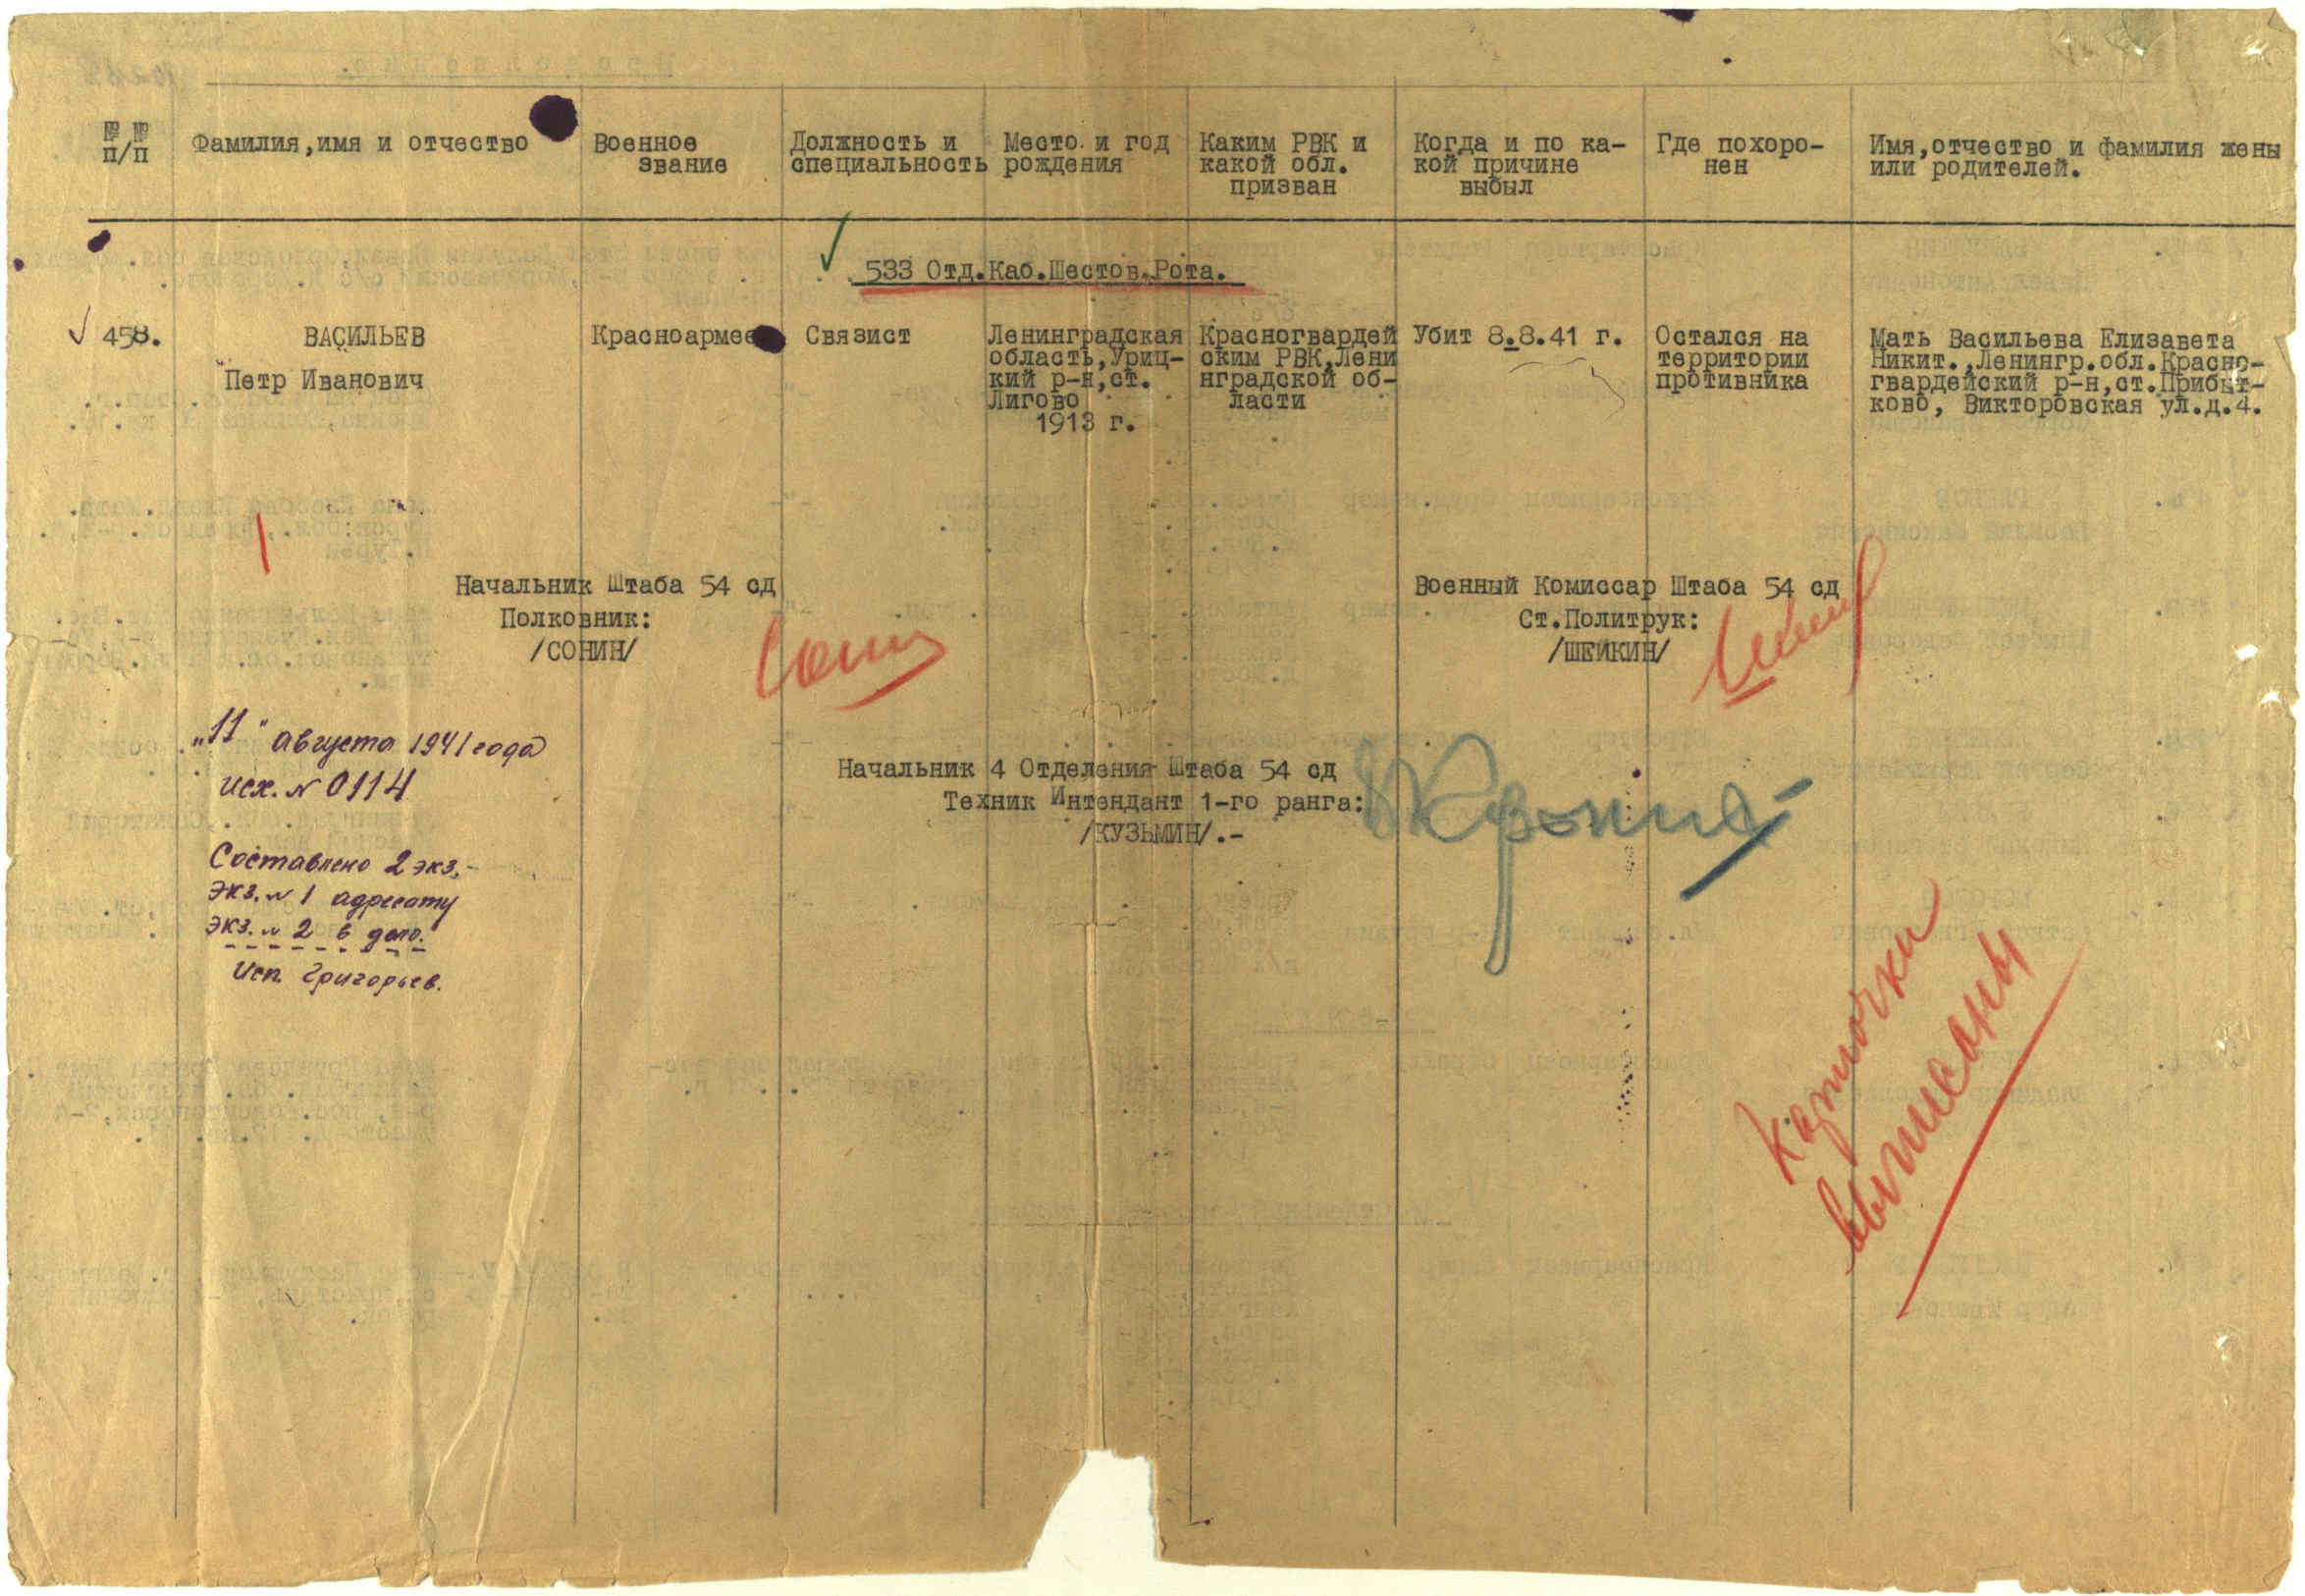 № № п/п
Фамилия,имя и отчество
Военное
звание
Должность и
специальность
Место и год
рождения
Каким РВК и
какой обл.
призван
Когда и по ка-
кой причине
выбыл
Где похоро-
нен
Имя,отчество и фамилия жены
или родителей.
533 Отд.Каб.Шестов.Рота.
458.
ВАСИЛЬЕВ
Петр Иванович
Красноармеец
Связист
Ленинградская
область,Уриц-
кий р-н,ст.
Лигово
1913 г.
Красногвардей
ским РВК,Лени
нградской об-
ласти
Убит 8.8.41 г.
Остался на
территории
противника
Мать Васильева Елизавета
Никит.,Ленингр.обл.Красно-
гвардейский р-н,ст.Прибыт-
ково, Викторовская ул.д.4.
Начальник Штаба 54 сд
Полковник:
/СОНИН/
Сонин
Военный Комиссар Штаба 54 сд
Ст.Политрук:
/ШЕЙКИН/
„11" августа 1941 года
исх. № 0114
Начальник 4 Отделения Штаба 54 сд
Техник Интендант 1-го ранга:
/КУЗЬМИН/.-
Составлено 2 экз.-
Экз. № 1 адресату
Экз. № 2 в дело.
Исп. Григорьев.
Карточки
выписаны